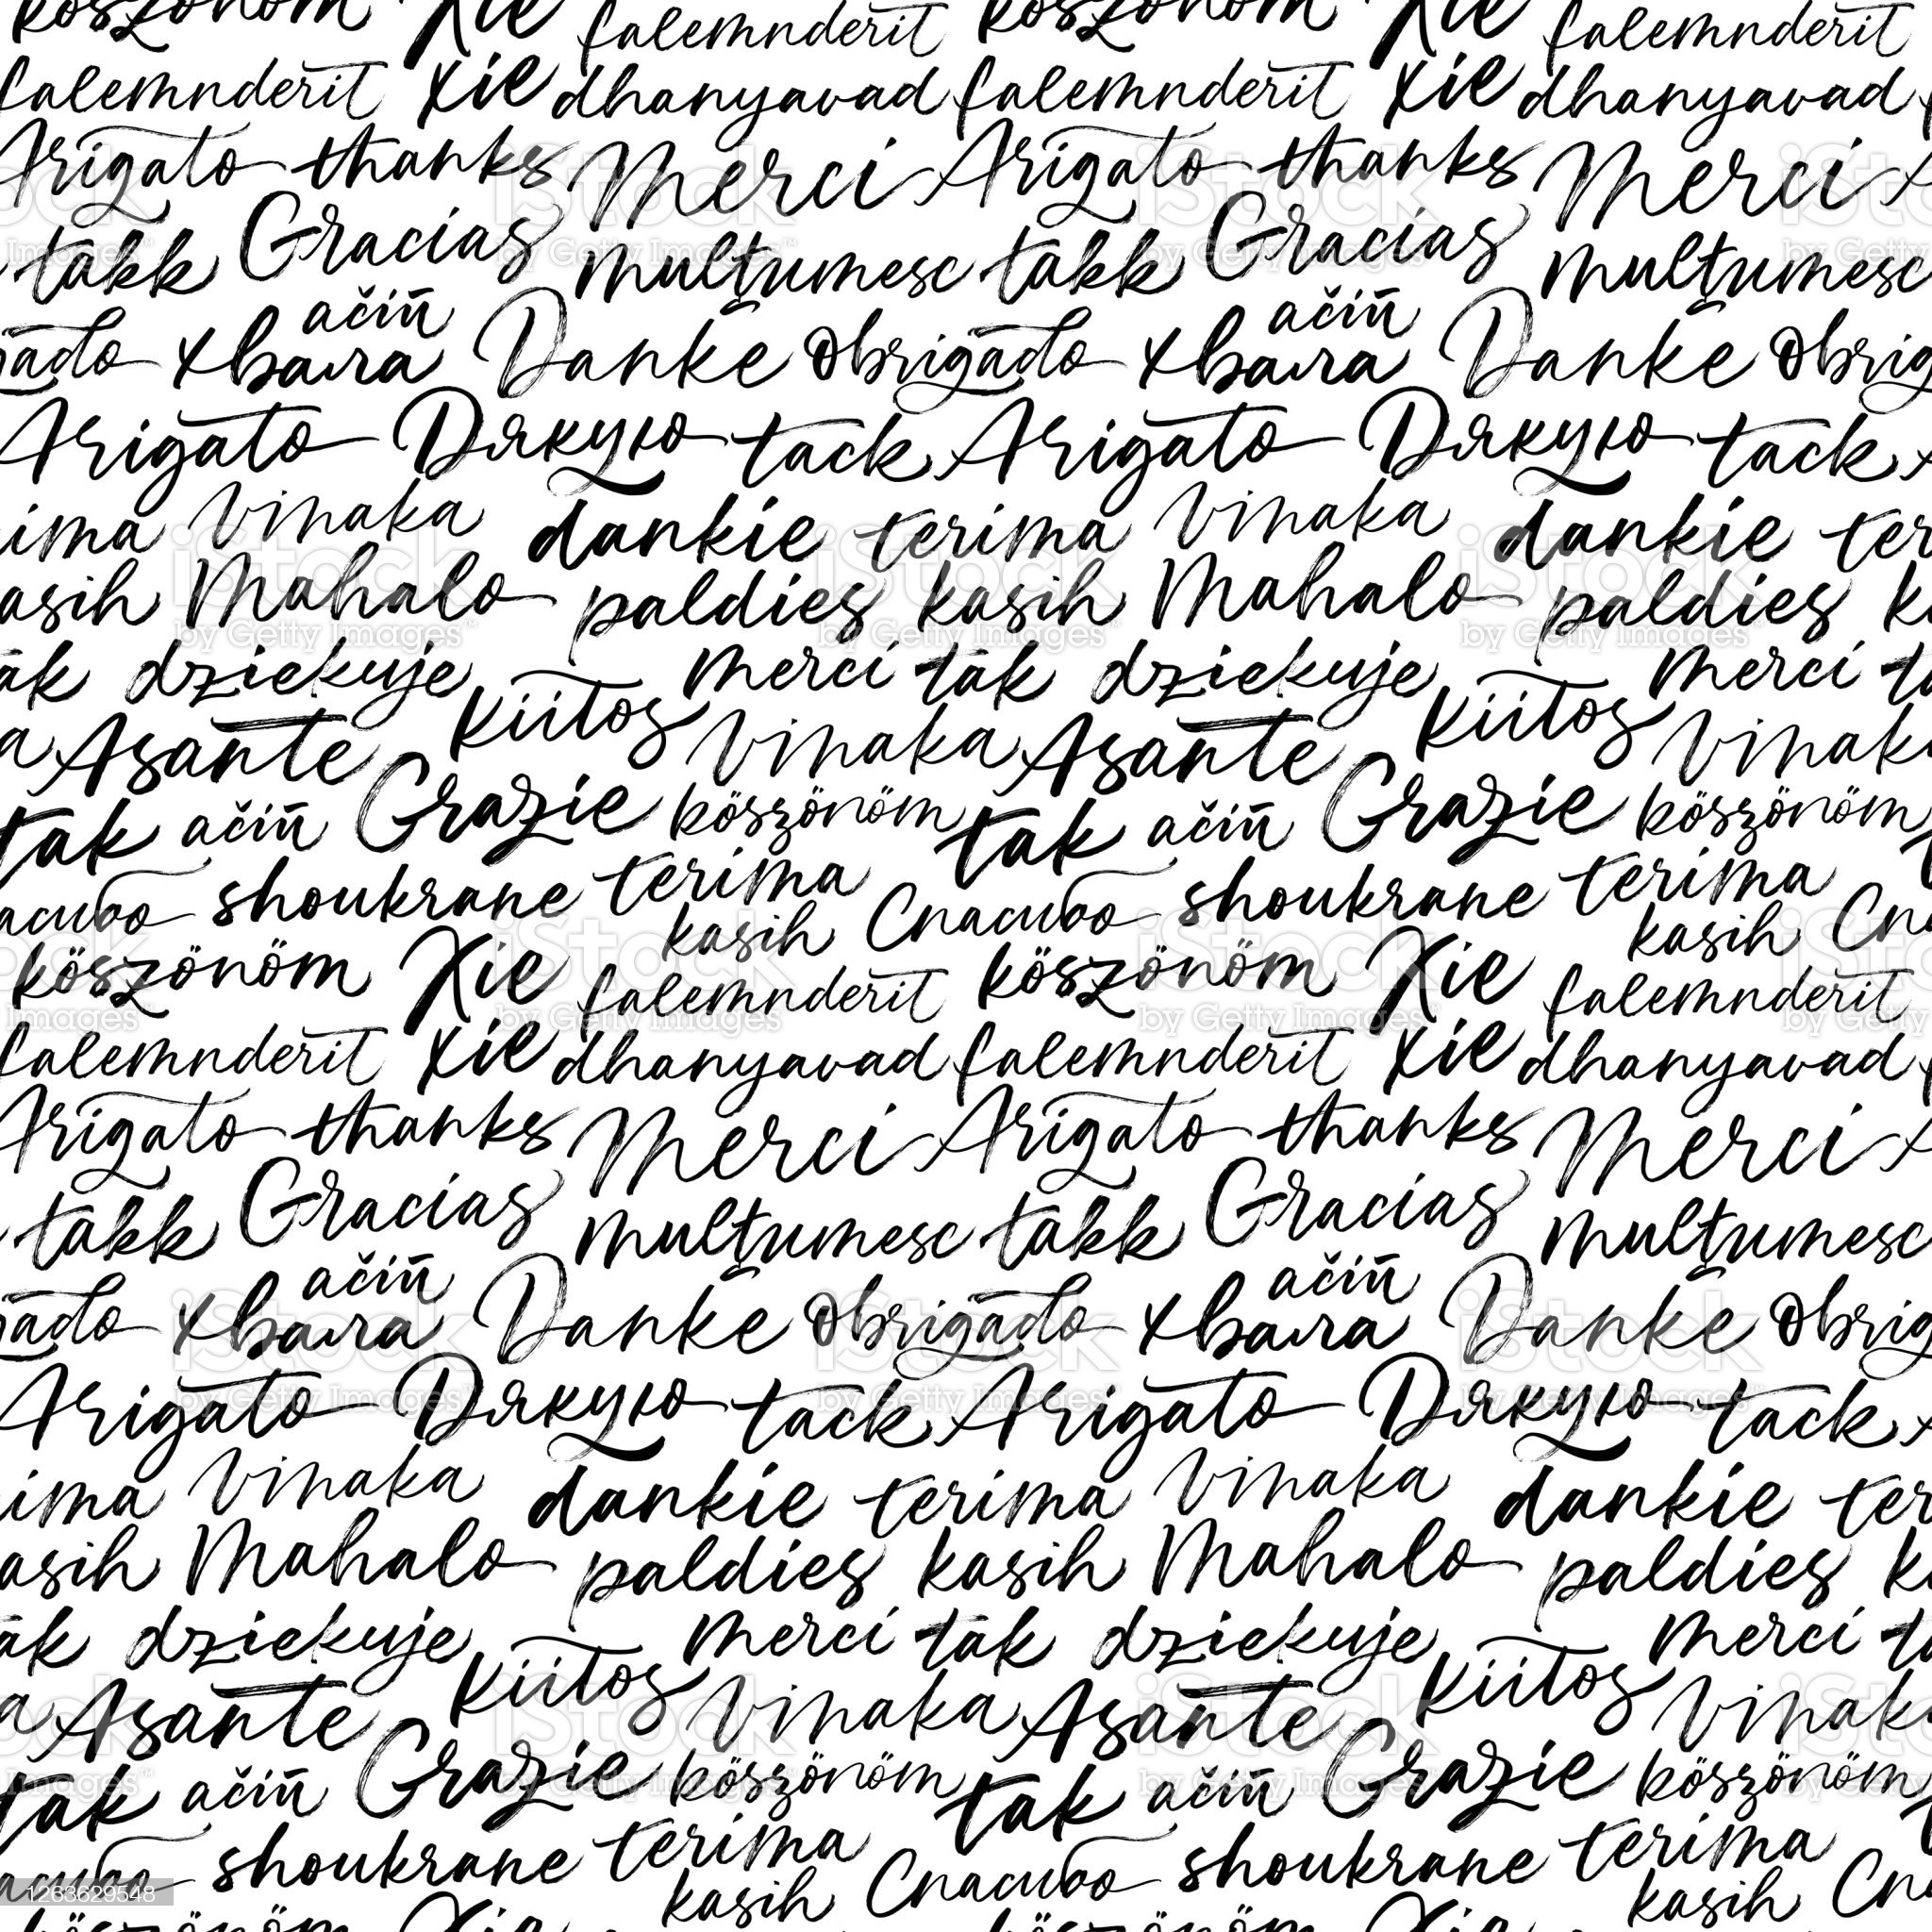 köszönöm Xie falemnderit köszönöm Xie falemnderit
falemnderit xie dhanyavad falemnderit xie dhanyavad
Arigato thanks Merci Arigato thanks Merci
takk Gracias multumesc takk Gracias multumesc
ačiū ačiū
gado хвала Danke Obrigado хвала Danke Obrig
Arigato Дякую tack Arigato Дякую tack
ima Vinaka dankie terima Vinaka dankie ter
asih Mahalo paldies kasih Mahalo paldies k
ak dziekuje merci tak dziekuje merci t
a Asante kiitos Vinaka Asante kiitos Vinak
tak ačiū Grazie köszönöm tak ačiū Grazie köszönöm
асибо shoukrane terima kasih Спасибо shoukrane terima kasih Сп
köszönöm Xie falemnderit köszönöm Xie falemnderit
falemnderit xie dhanyavad falemnderit xie dhanyavad
Arigato thanks Merci Arigato thanks Merci
takk Gracias multumesc takk Gracias multumesc
ačiū ačiū
gado хвала Danke Obrigado хвала Danke Obrig
Arigato Дякую tack Arigato Дякую tack
ima Vinaka dankie terima Vinaka dankie ter
asih Mahalo paldies kasih Mahalo paldies k
ak dziekuje merci tak dziekuje merci t
a Asante kiitos Vinaka Asante kiitos Vinak
tak ačiū Grazie köszönöm tak ačiū Grazie köszönöm
асибо shoukrane terima kasih Спасибо shoukrane terima kasih Сп
köszönöm Xie köszönöm Xie
iStock
by Getty Images™
1263629548